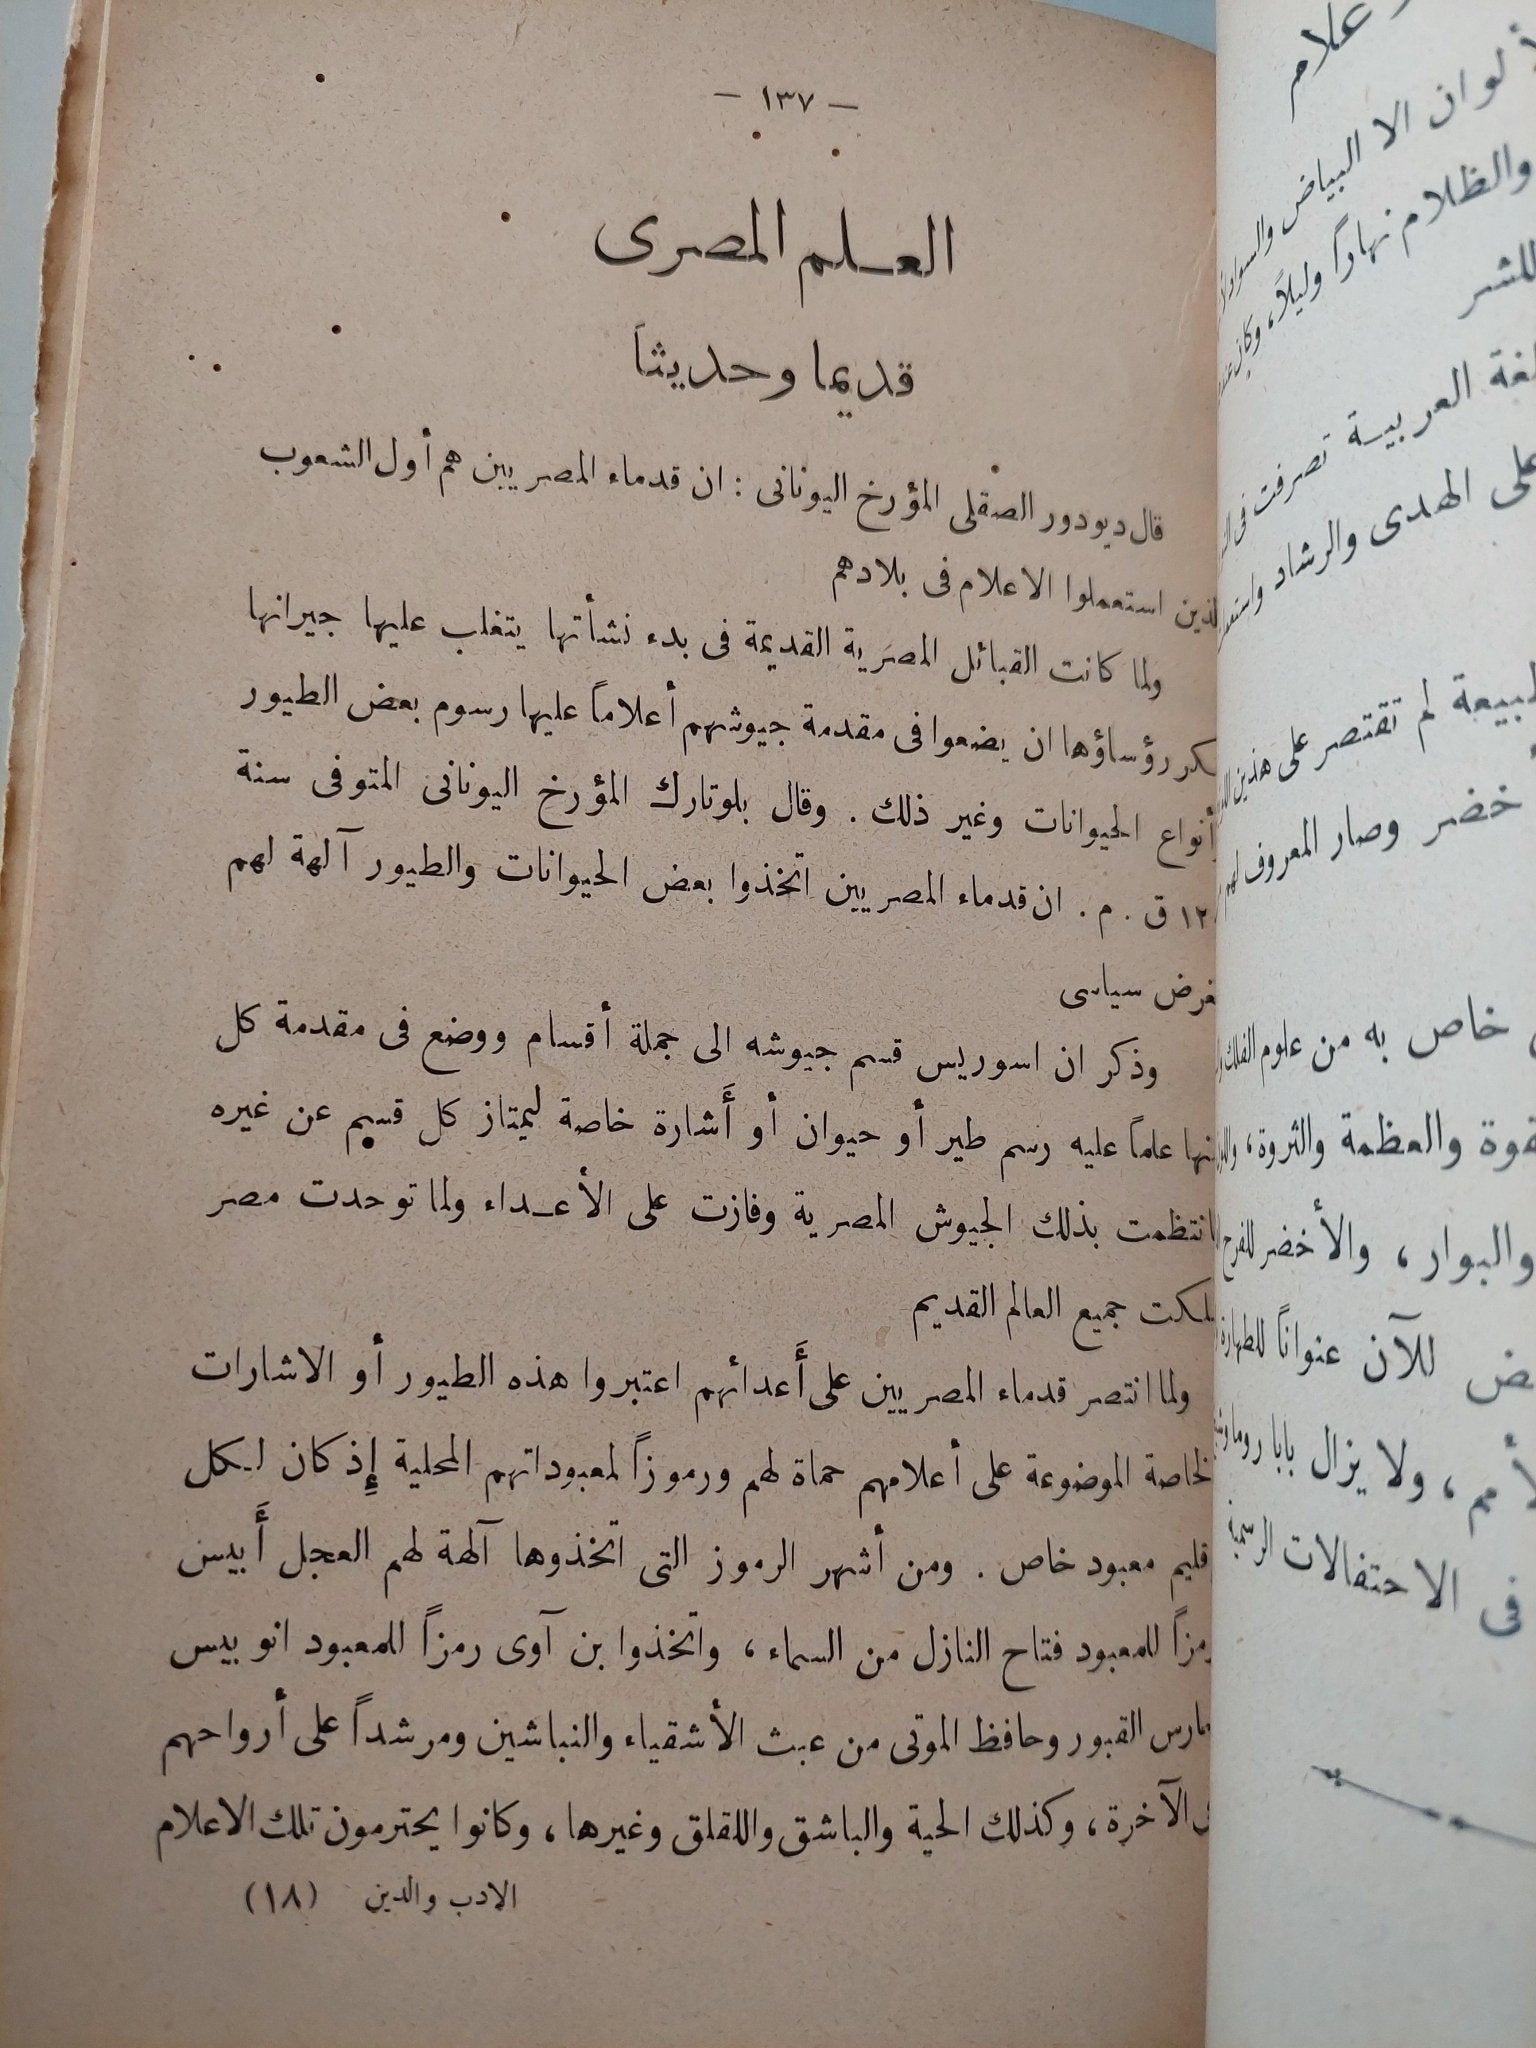 — ١٣٧ —
العلم المصرى
قديما وحديثاً
قال ديودور الصقلى المؤرخ اليونانى : ان قدماء المصريين هم أول الشعوب
الذين استعملوا الاعلام فى بلادهم
ولما كانت القبائل المصرية القديمة فى بدء نشأتها يتغلب عليها جيرانها
رؤساؤها ان يضعوا فى مقدمة جيوشهم أعلاماً عليها رسوم بعض الطيور
وأنواع الحيوانات وغير ذلك . وقال بلوتارك المؤرخ اليونانى المتوفى سنة
ق . م . ان قدماء المصريين اتخذوا بعض الحيوانات والطيور آلهة لهم
لغرض سياسى
وذكر ان اسوريس قسم جيوشه الى جملة أقسام ووضع فى مقدمة كل
منها علماً عليه رسم طير أو حيوان أو أَشارة خاصة ليمتاز كل قسم عن غيره
فانتظمت بذلك الجيوش المصرية وفازت على الأعداء ولما توحدت مصر
ملكت جميع العالم القديم
ولما انتصر قدماء المصريين على أَعدائهم اعتبروا هذه الطيور أو الاشارات
الخاصة الموضوعة على أعلامهم حماة لهم ورموزاً لمعبوداتهم المحلية إِذ كان لكل
اقليم معبود خاص . ومن أشهر الرموز التى اتخذوها آلهة لهم العجل أَبيس
رمزاً للمعبود فتاح النازل من السماء ، واتخذوا بن آوى رمزاً للمعبود انوبيس
حارس القبور وحافظ الموتى من عبث الأشقياء والنباشين ومرشداً على أرواحهم
الآخرة ، وكذلك الحية والباشق واللقلق وغيرها ، وكانوا يحترمون تلك الاعلام
الادب والدين (١٨)
علام
لوان الا البياض والسواد
والظلام نهاراً وليلاً ، وكان
للشر
العربية تصرفت فى
على الهدى والرشاد
لم تقتصر على هذين
خضر وصار المعروف لهم
خاص به من علوم الفلك
والعظمة والثروة ،
والبوار ، والأخضر للفرح
للآن عنواناً للطهارة
، ولا يزال بابا روما
فى الاحتفالات الرسمية